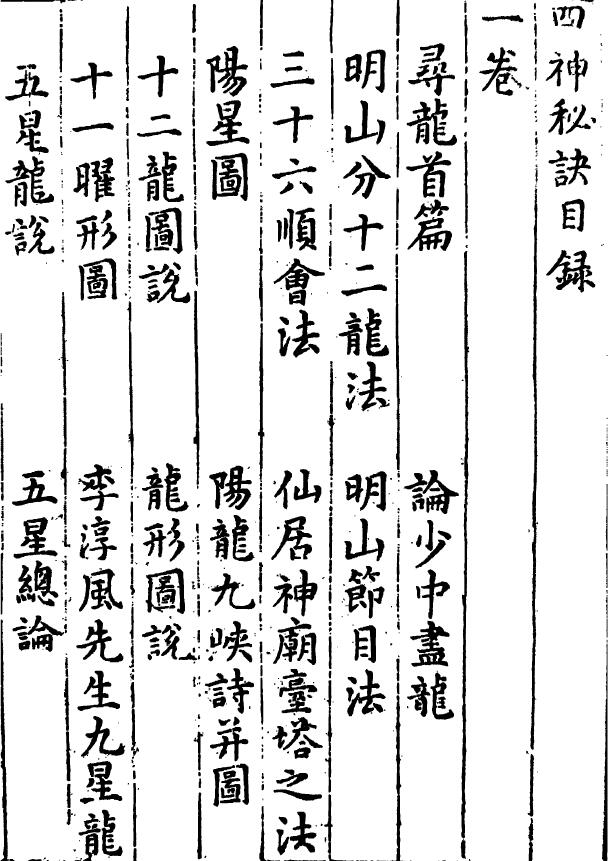 四神秘訣目録
一卷
尋龍首篇 論少中盡龍
明山分十二龍法 明山節目法
三十六順會法 仙居神廟臺塔之法
陽星圖 陽龍九峽詩并圖
十二龍圖説 龍形圖説
十一曜形圖 李淳風先生九星龍
五星龍説 五星總論